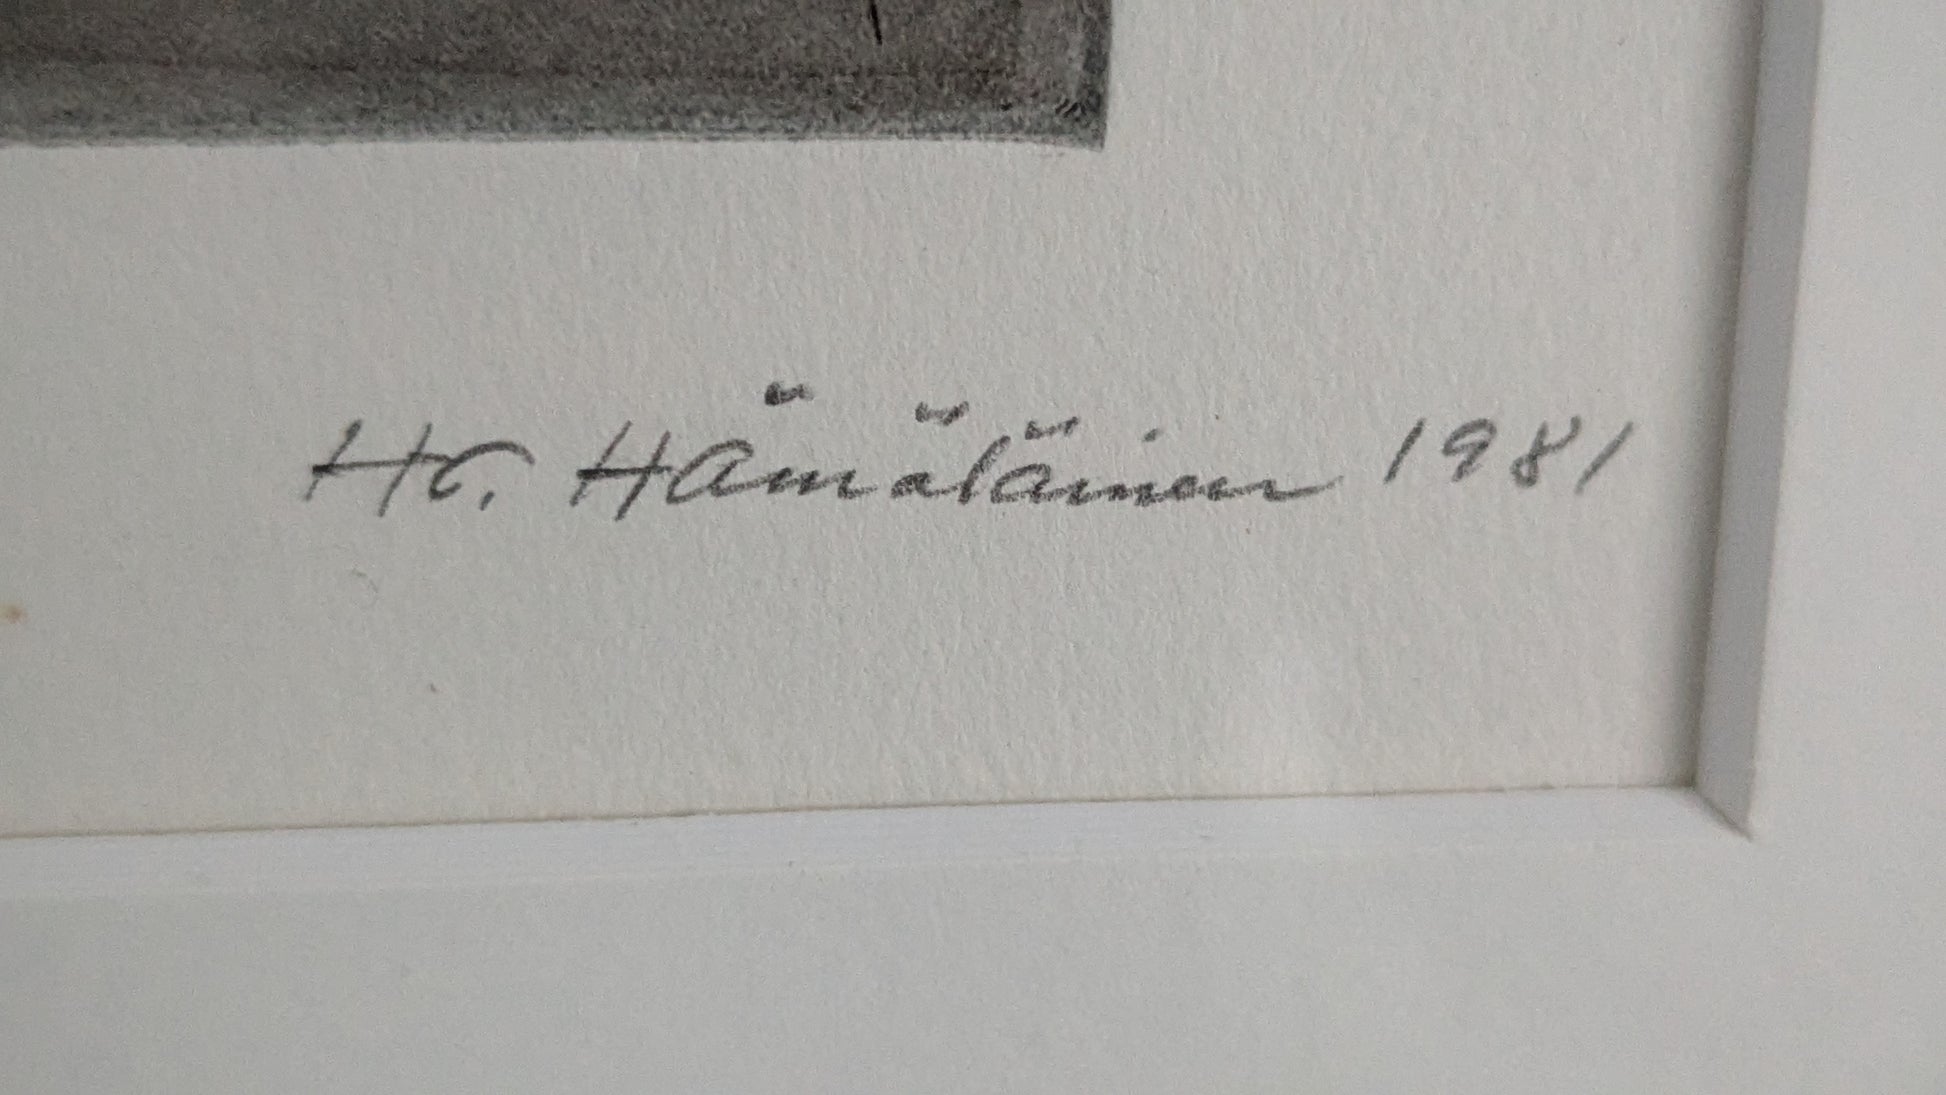 Hr. Hämäläinen 1981